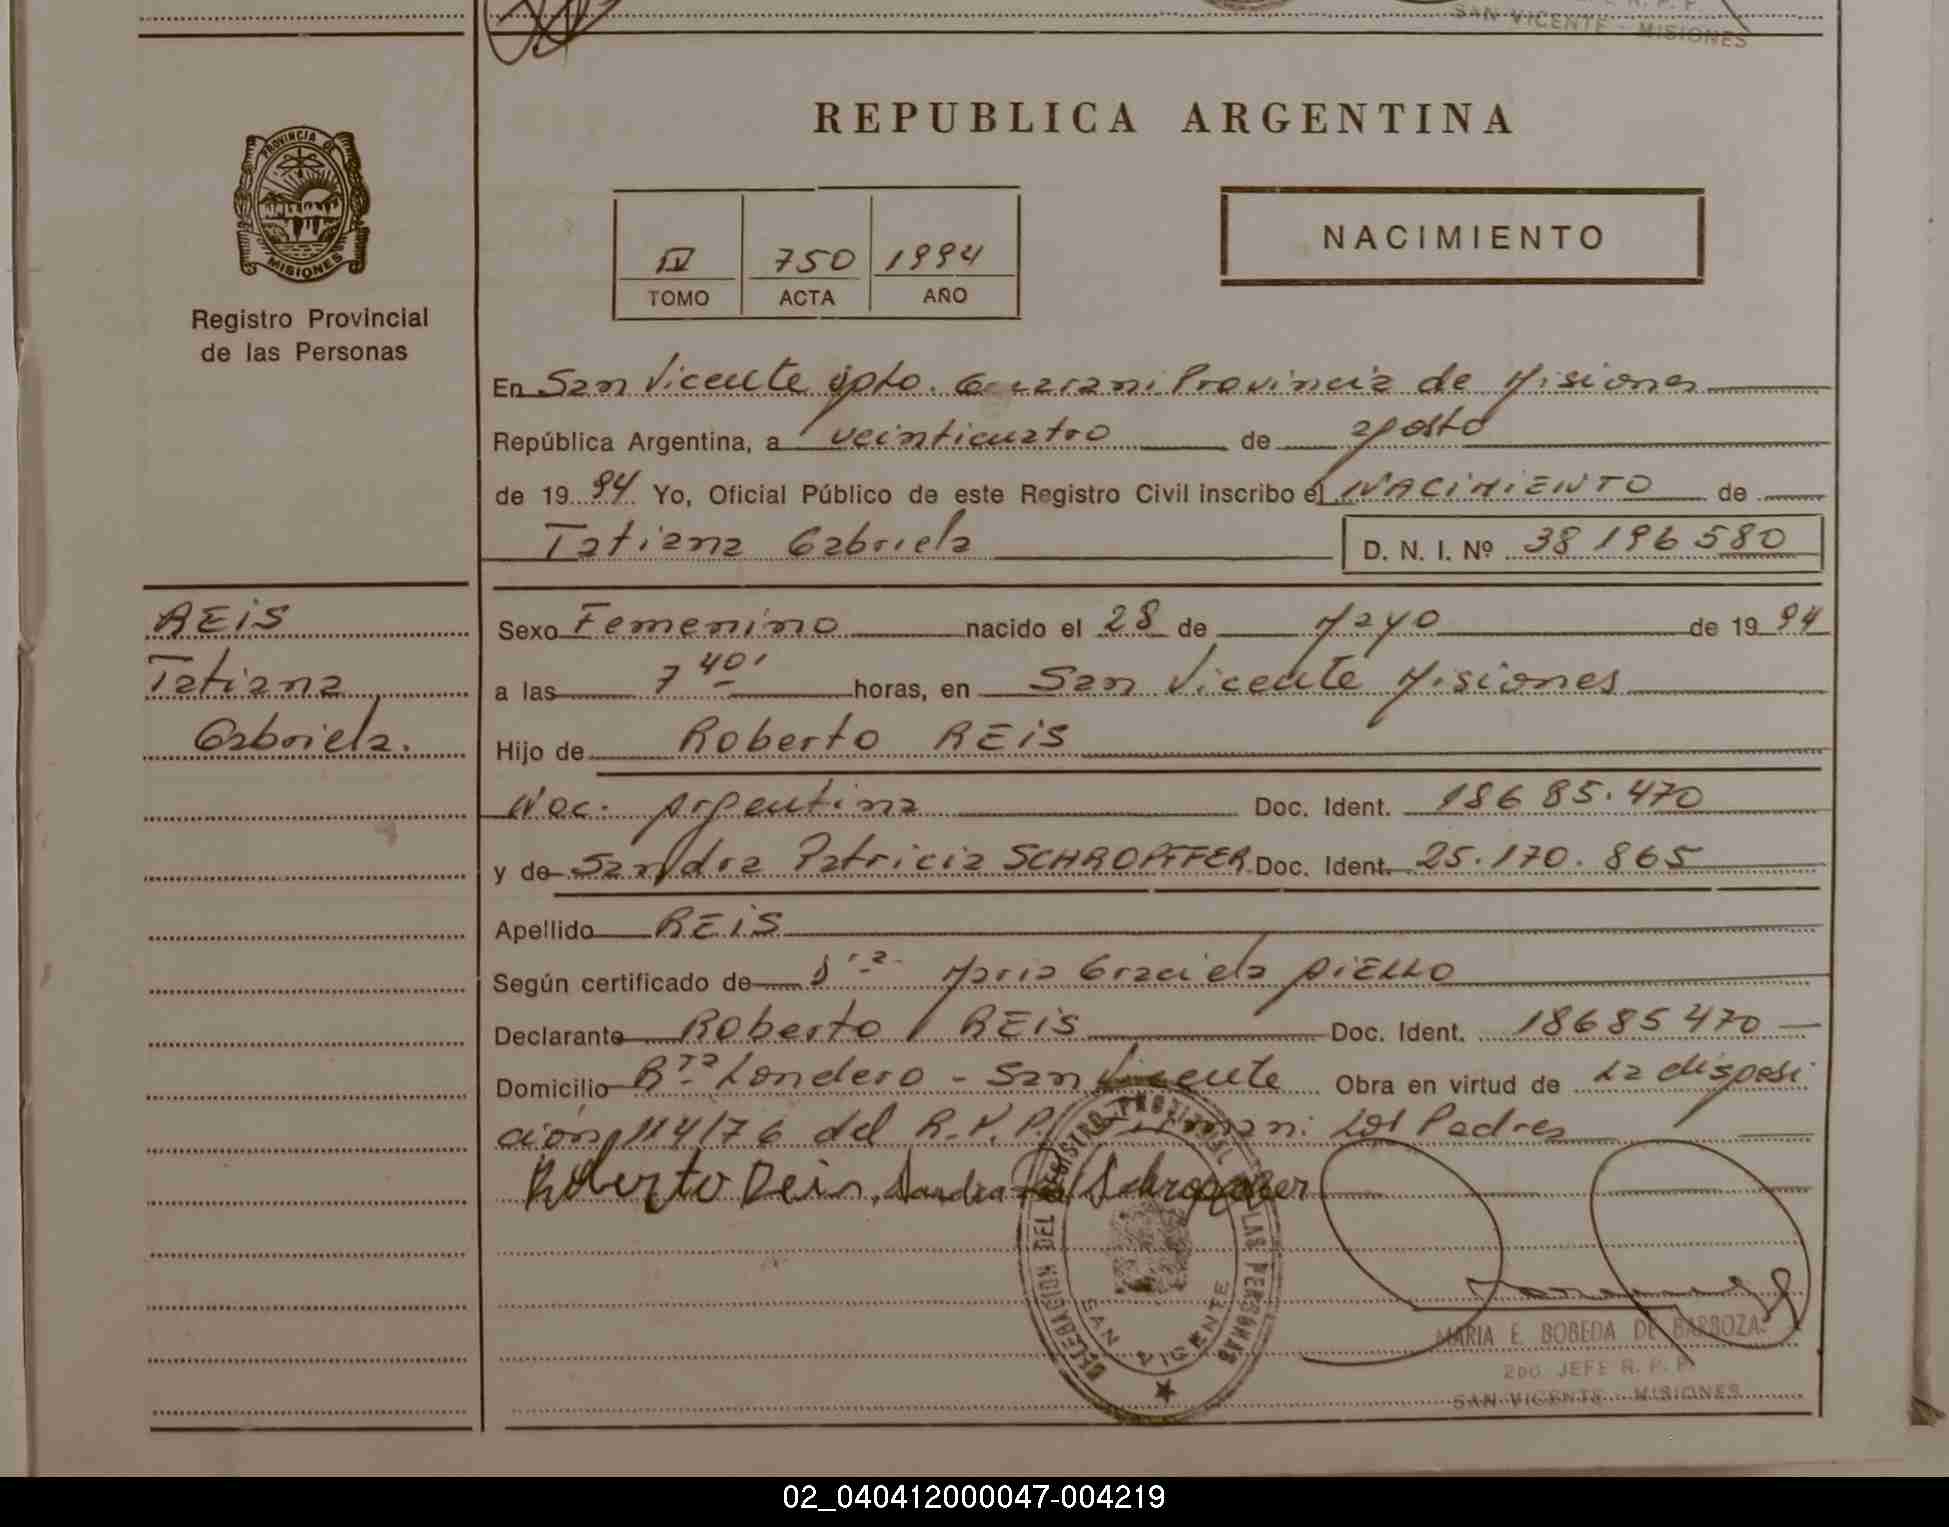 SAN VICENTE - MISIONES
REPUBLICA ARGENTINA
PROVINCIA DE
MISIONES
Registro Provincial
de las Personas
IV 750 1994
TOMO ACTA AÑO
NACIMIENTO
En San Vicente Dpto. Guarani Provincia de Misiones
República Argentina, a veinticuatro de agosto
de 1994 Yo, Oficial Público de este Registro Civil inscribo el NACIMIENTO de
Tatiana Gabriela D. N. I. Nº 38196580
REIS
Tatiana
Gabriela.
Sexo Femenino nacido el 28 de Mayo de 1994
a las 7 40' horas, en San Vicente Misiones
Hijo de Roberto REIS
Nac. Argentina Doc. Ident. 18685.470
y de Sandra Patricia SCHROPFFER Doc. Ident. 25.170.865
Apellido REIS
Según certificado de Maria Graciela
Declarante Roberto REIS Doc. Ident. 18685470
Domicilio Bº Londero - San Vicente Obra en virtud de La disposi
ción 114/76 del R.P.P. Firman: Los Padres
Roberto Reis. Sandra
DELEGACION DEL REGISTRO PROVINCIAL DE LAS PERSONAS
SAN VICENTE
MARIA E. BOBEDA DE BARBOZA
2DO JEFE R. P. P.
SAN VICENTE - MISIONES
02_040412000047-004219